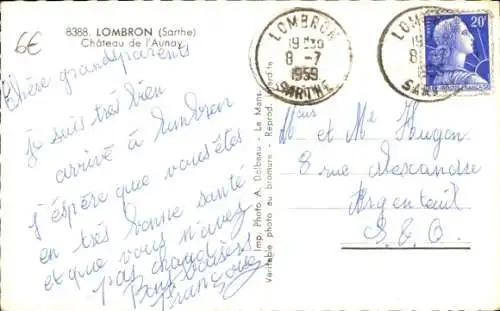 6€
8388. LOMBRON (Sarthe)
Château de l'Aunay
Chère grandparents
je suis très bien
arrivé à Lombron
j'espère que vous êtes
en très bonne santé
et que vous n'avez
pas chaud
Bons baisers
Françoise
Imp. Photo A. Dolbeau - Le Mans.
Véritable photo au bromure - Reprod. interdite
LOMBRON
19 H30
8 -7
1959
SARTHE
LOMBRON
19
8
SAR
20F
Mr et Me Hugon
8 rue Alexandre
Argenteuil
S. & O.